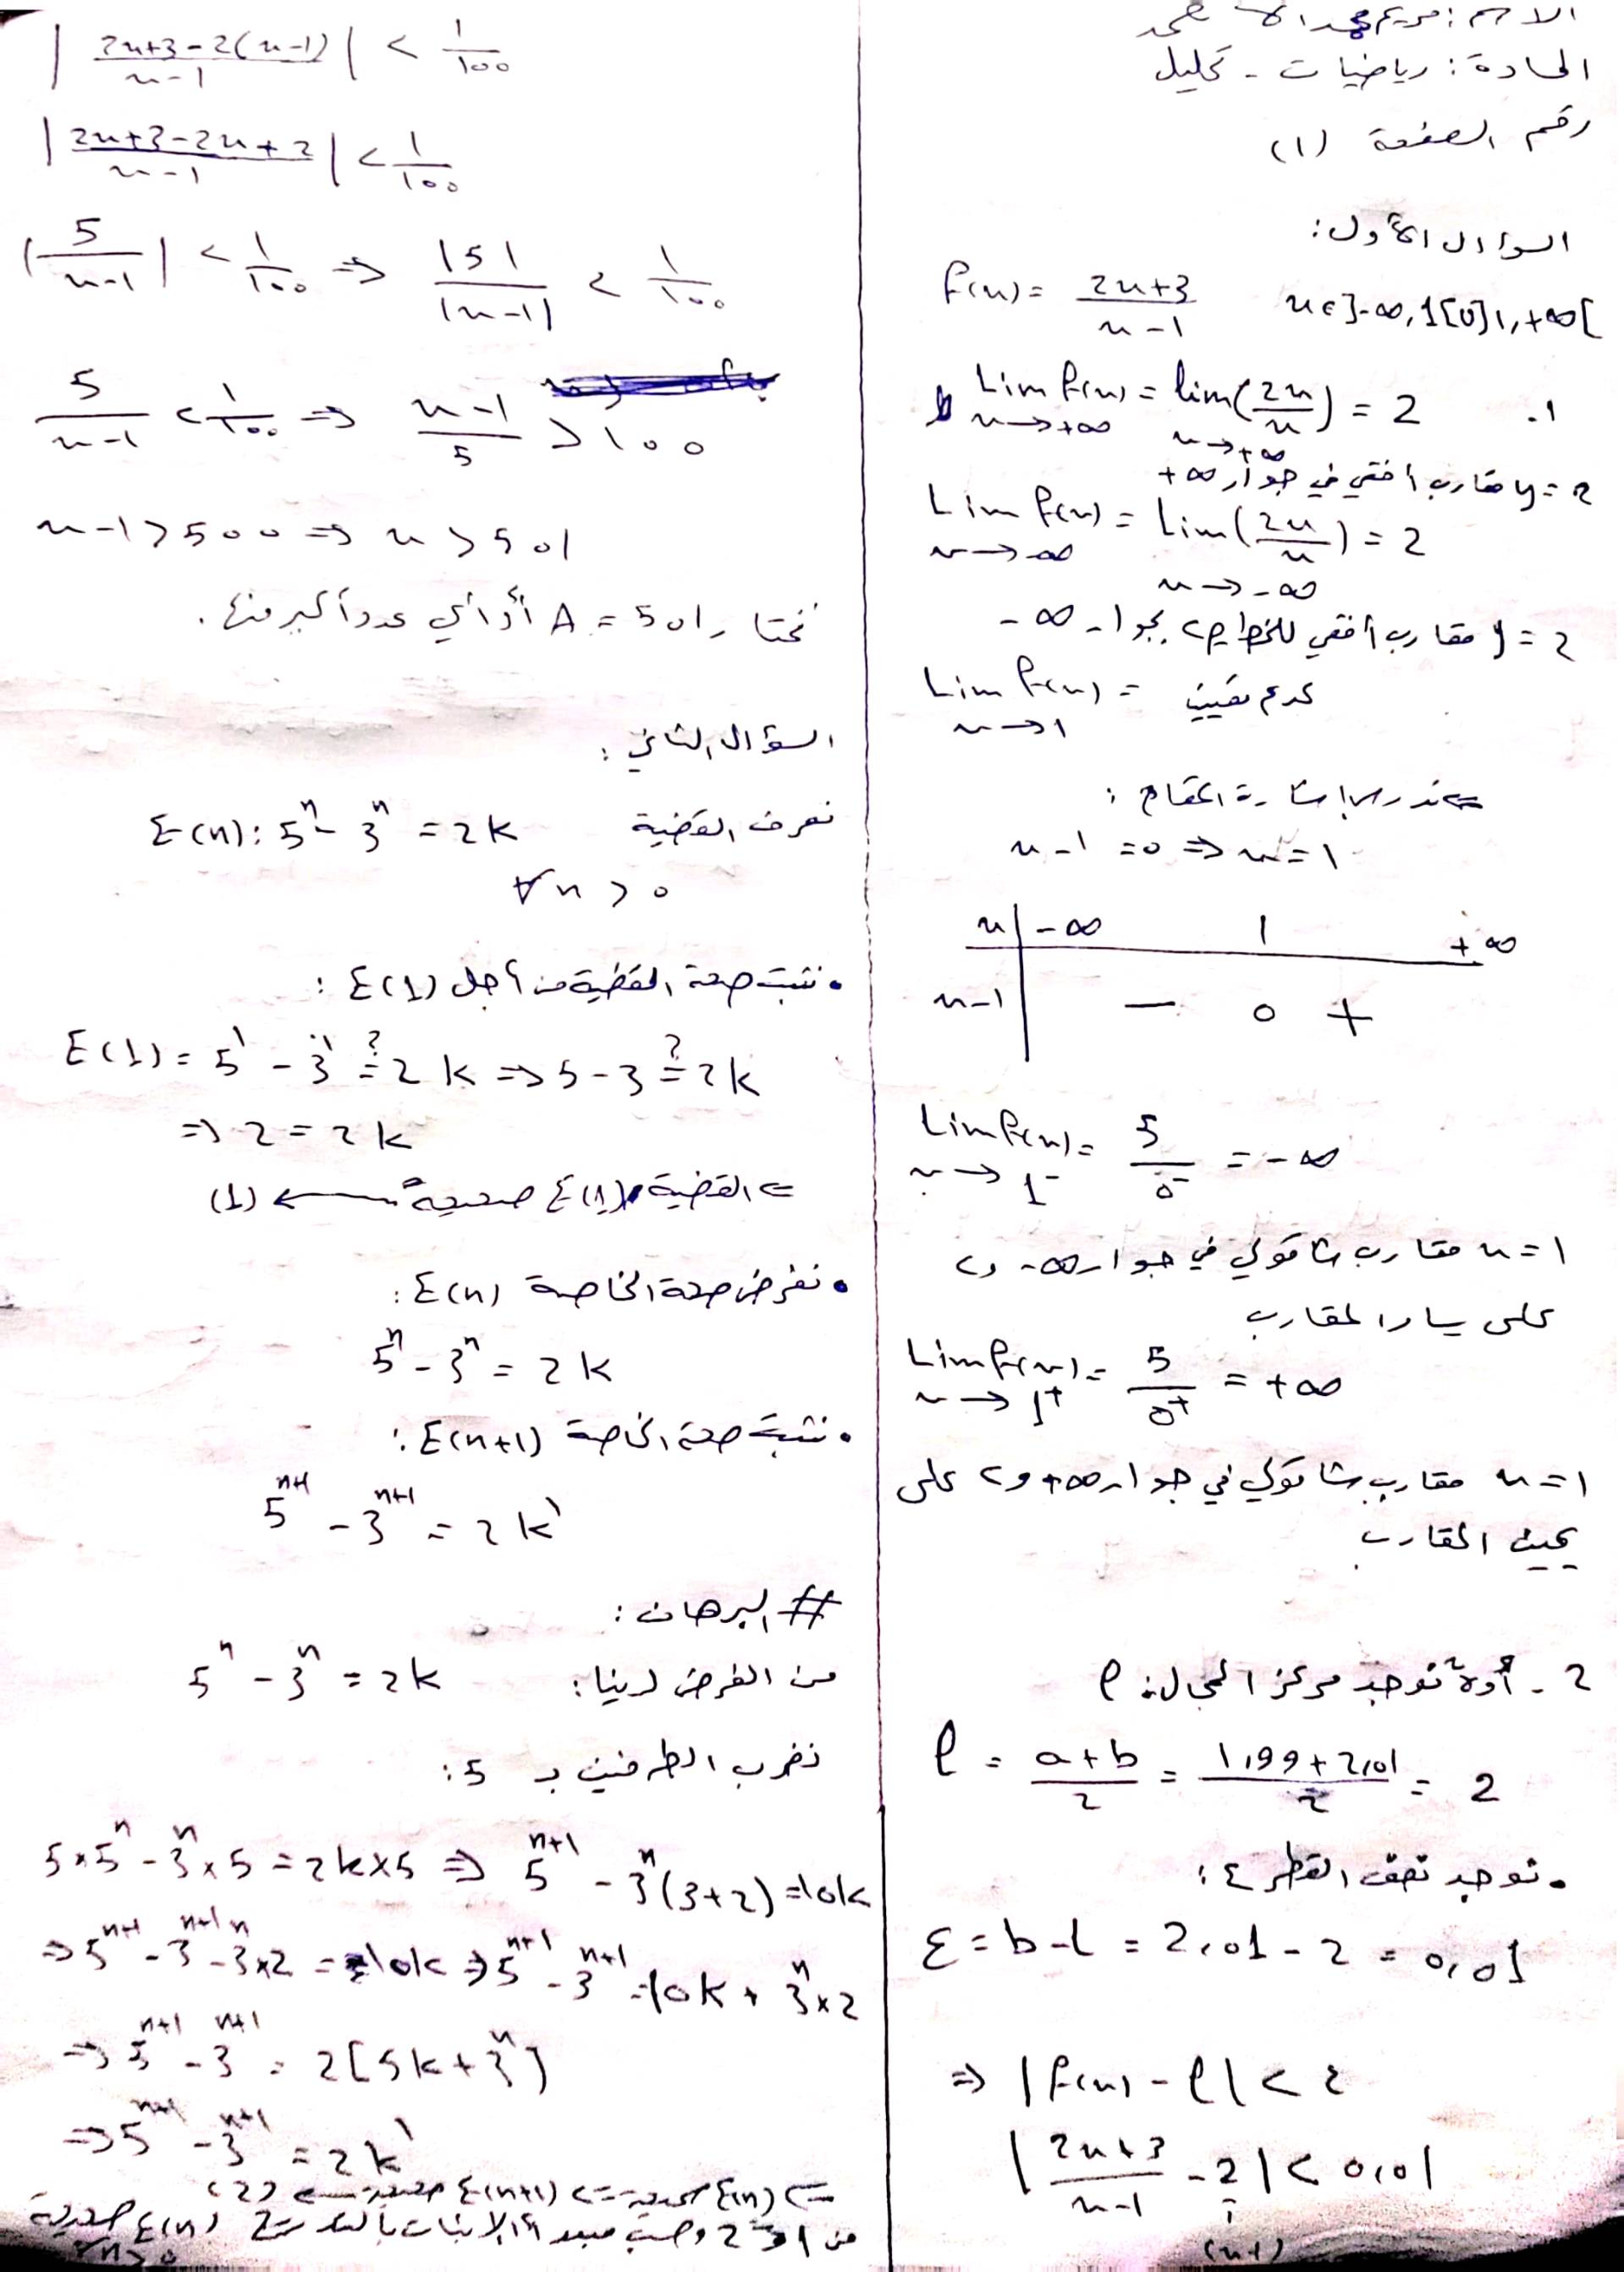 الاسم: مريم
المادة: رياضيات - تحليل
رقم الصفحة (1)
السؤال الأول:
f(x) = \frac{2x+3}{x-1} x∈]-∞,1[∪]1,+∞[
1. Lim_{x→+∞} f(x) = lim_{x→+∞} (\frac{2x}{x}) = 2
y = 2 مقارب أفقي في جوار +∞
Lim_{x→-∞} f(x) = Lim_{x→-∞} (\frac{2x}{x}) = 2
y = 2 مقارب أفقي للخط C بجوار -∞
Lim_{x→1} f(x) = عدم تعيين
⇐ ندرس إشارة المقام:
x-1 = 0 ⇒ x = 1
x | -∞ 1 +∞
x-1 | - 0 +
Lim_{x→1⁻} f(x) = \frac{5}{0⁻} = -∞
x = 1 مقارب شاقولي في جوار -∞ و C
على يسار المقارب
Lim_{x→1⁺} f(x) = \frac{5}{0⁺} = +∞
x = 1 مقارب شاقولي في جوار +∞ و C على
يمين المقارب
2 - أولاً نوجد مركز المجال: ℓ
ℓ = \frac{a+b}{2} = \frac{1,99+2,01}{2} = 2
• نوجد نصف القطر ε:
ε = b-ℓ = 2,01 - 2 = 0,01
⇒ |f(x) - ℓ| < ε
|\frac{2x+3}{x-1} - 2| < 0,01
(x-1)
|\frac{2x+3-2(x-1)}{x-1}| < \frac{1}{100}
|\frac{2x+3-2x+2}{x-1}| < \frac{1}{100}
|\frac{5}{x-1}| < \frac{1}{100} ⇒ \frac{|5|}{|x-1|} < \frac{1}{100}
\frac{5}{x-1} < \frac{1}{100} ⇒ \frac{x-1}{5} > 100
x-1 > 500 ⇒ x > 501
نختار A = 501 أو أي عدد أكبر منها.
السؤال الثاني:
نعرف القضية E(n): 5ⁿ - 3ⁿ = 2k
∀n > 0
• نثبت صحة القضية من أجل E(1):
E(1) = 5¹ - 3¹ ≟ 2k ⇒ 5-3 ≟ 2k
⇒ 2 = 2k
⇐ القضية E(1) صحيحة ← (1)
• نفرض صحة الخاصة E(n):
5ⁿ - 3ⁿ = 2k
• نثبت صحة الخاصة E(n+1):
5ⁿ⁺¹ - 3ⁿ⁺¹ = 2k'
# البرهان:
من الفرض لدينا: 5ⁿ - 3ⁿ = 2k
نضرب الطرفين بـ 5:
5×5ⁿ - 3ⁿ×5 = 2k×5 ⇒ 5ⁿ⁺¹ - 3ⁿ(3+2) = 10k
⇒ 5ⁿ⁺¹ - 3ⁿ⁺¹ - 3ⁿ×2 = 10k ⇒ 5ⁿ⁺¹ - 3ⁿ⁺¹ = 10k + 3ⁿ×2
⇒ 5ⁿ⁺¹ - 3ⁿ⁺¹ = 2[5k+3ⁿ]
⇒ 5ⁿ⁺¹ - 3ⁿ⁺¹ = 2k'
⇐ E(n) صحيحة ⇐ E(n+1) صحيحة ← (2)
من 1 و 2 وحسب مبدأ الإثبات بالتدريج E(n) صحيحة
∀n>0